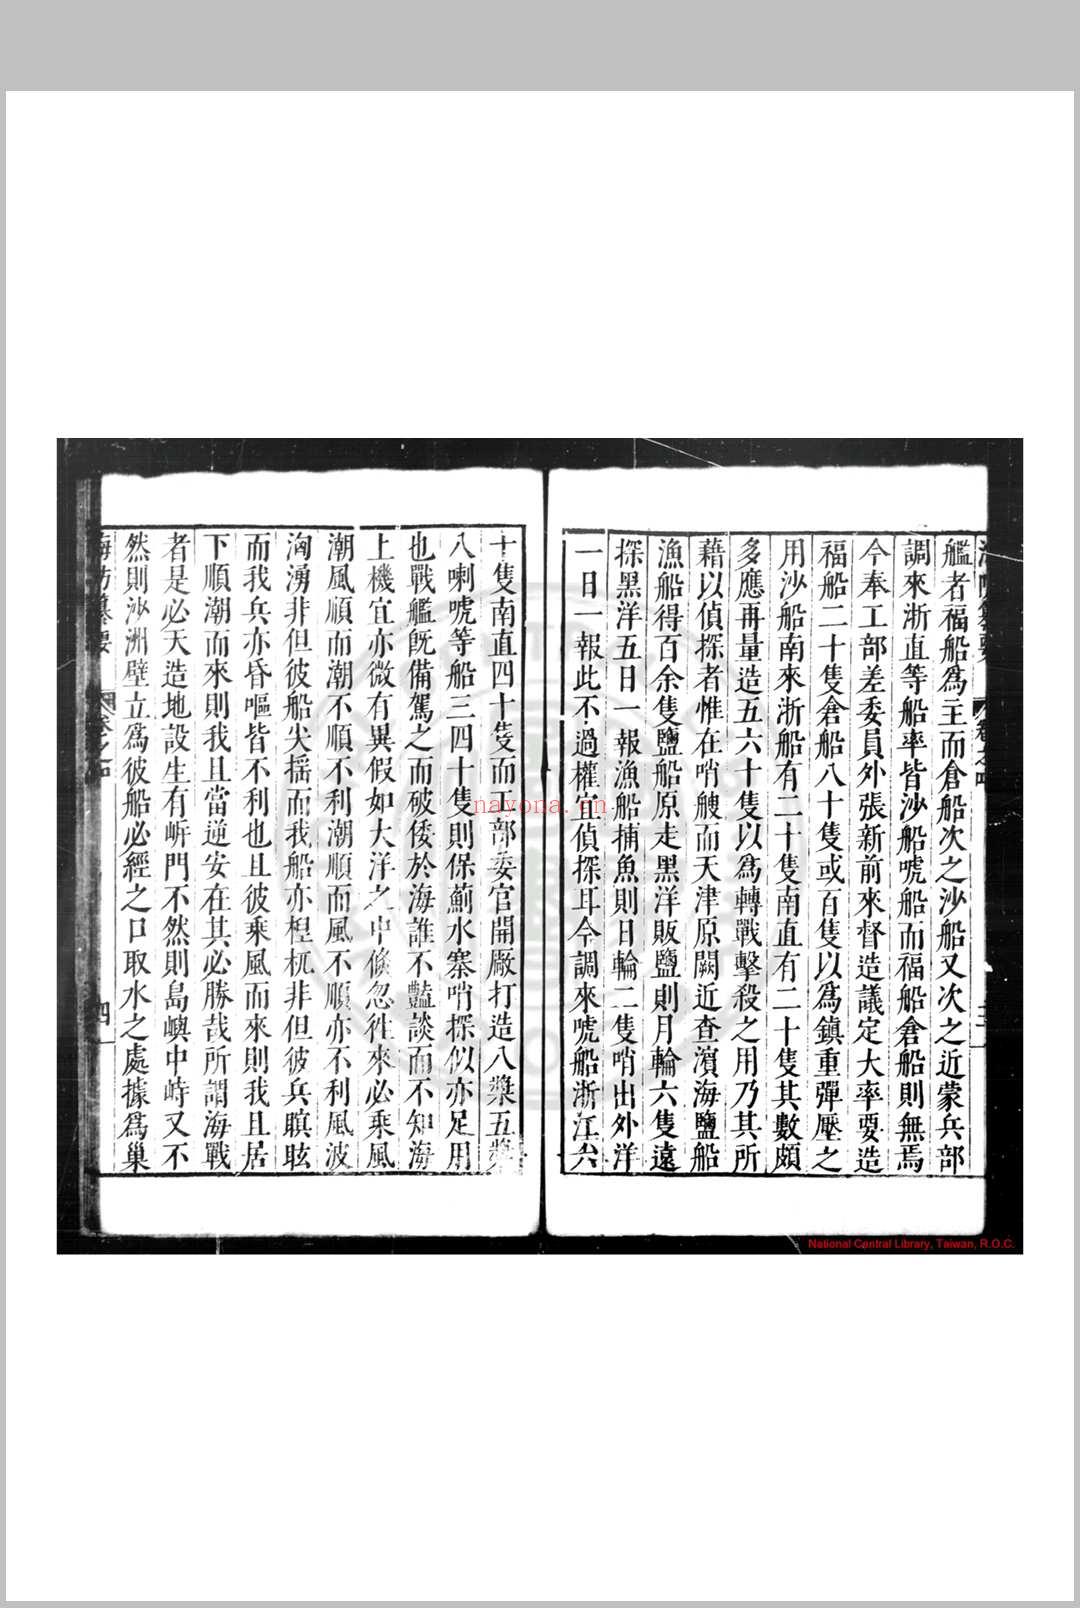 艦者福船為主而倉船次之沙船又次之近蒙兵部
調來浙直等船率皆沙船唬船而福船倉船則無焉
今奉工部差委員外張新前來督造議定大率要造
福船二十隻倉船八十隻或百隻以為鎮重彈壓之
用沙船南來浙船有二十隻南直有二十隻其數頗
多應再量造五六十隻以為轉戰擊殺之用乃其所
藉以偵探者惟在哨艘而天津原闕近查濱海鹽船
漁船得百余隻鹽船原走黑洋販鹽則月輪六隻遠
探黑洋五日一報漁船捕魚則日輪二隻哨出外洋
一日一報此不過權宜偵探耳今調來唬船浙江六
十隻南直四十隻而工部委官開厰打造八槳五槳
八喇唬等船三四十隻則保薊水寨哨探似亦足用
也戰艦既備駕之而破倭於海誰不豔談而不知海
上機宜亦微有異假如大洋之中倏忽徃來必乘風
潮風順而潮不順不利潮順而風不順亦不利風波
洶湧非但彼船尖搖而我船亦桯杌非但彼兵瞋眩
而我兵亦昏嘔皆不利也且彼乘風而來則我且居
下順潮而來則我且當逆安在其必勝哉所謂海戰
者是必天造地設生有㟁門不然則島嶼中峙又不
然則沙洲壁立為彼船必經之口取水之處據為巢
海防纂要 卷之四 四
nayona.cn
National Central Library, Taiwan, R.O.C.